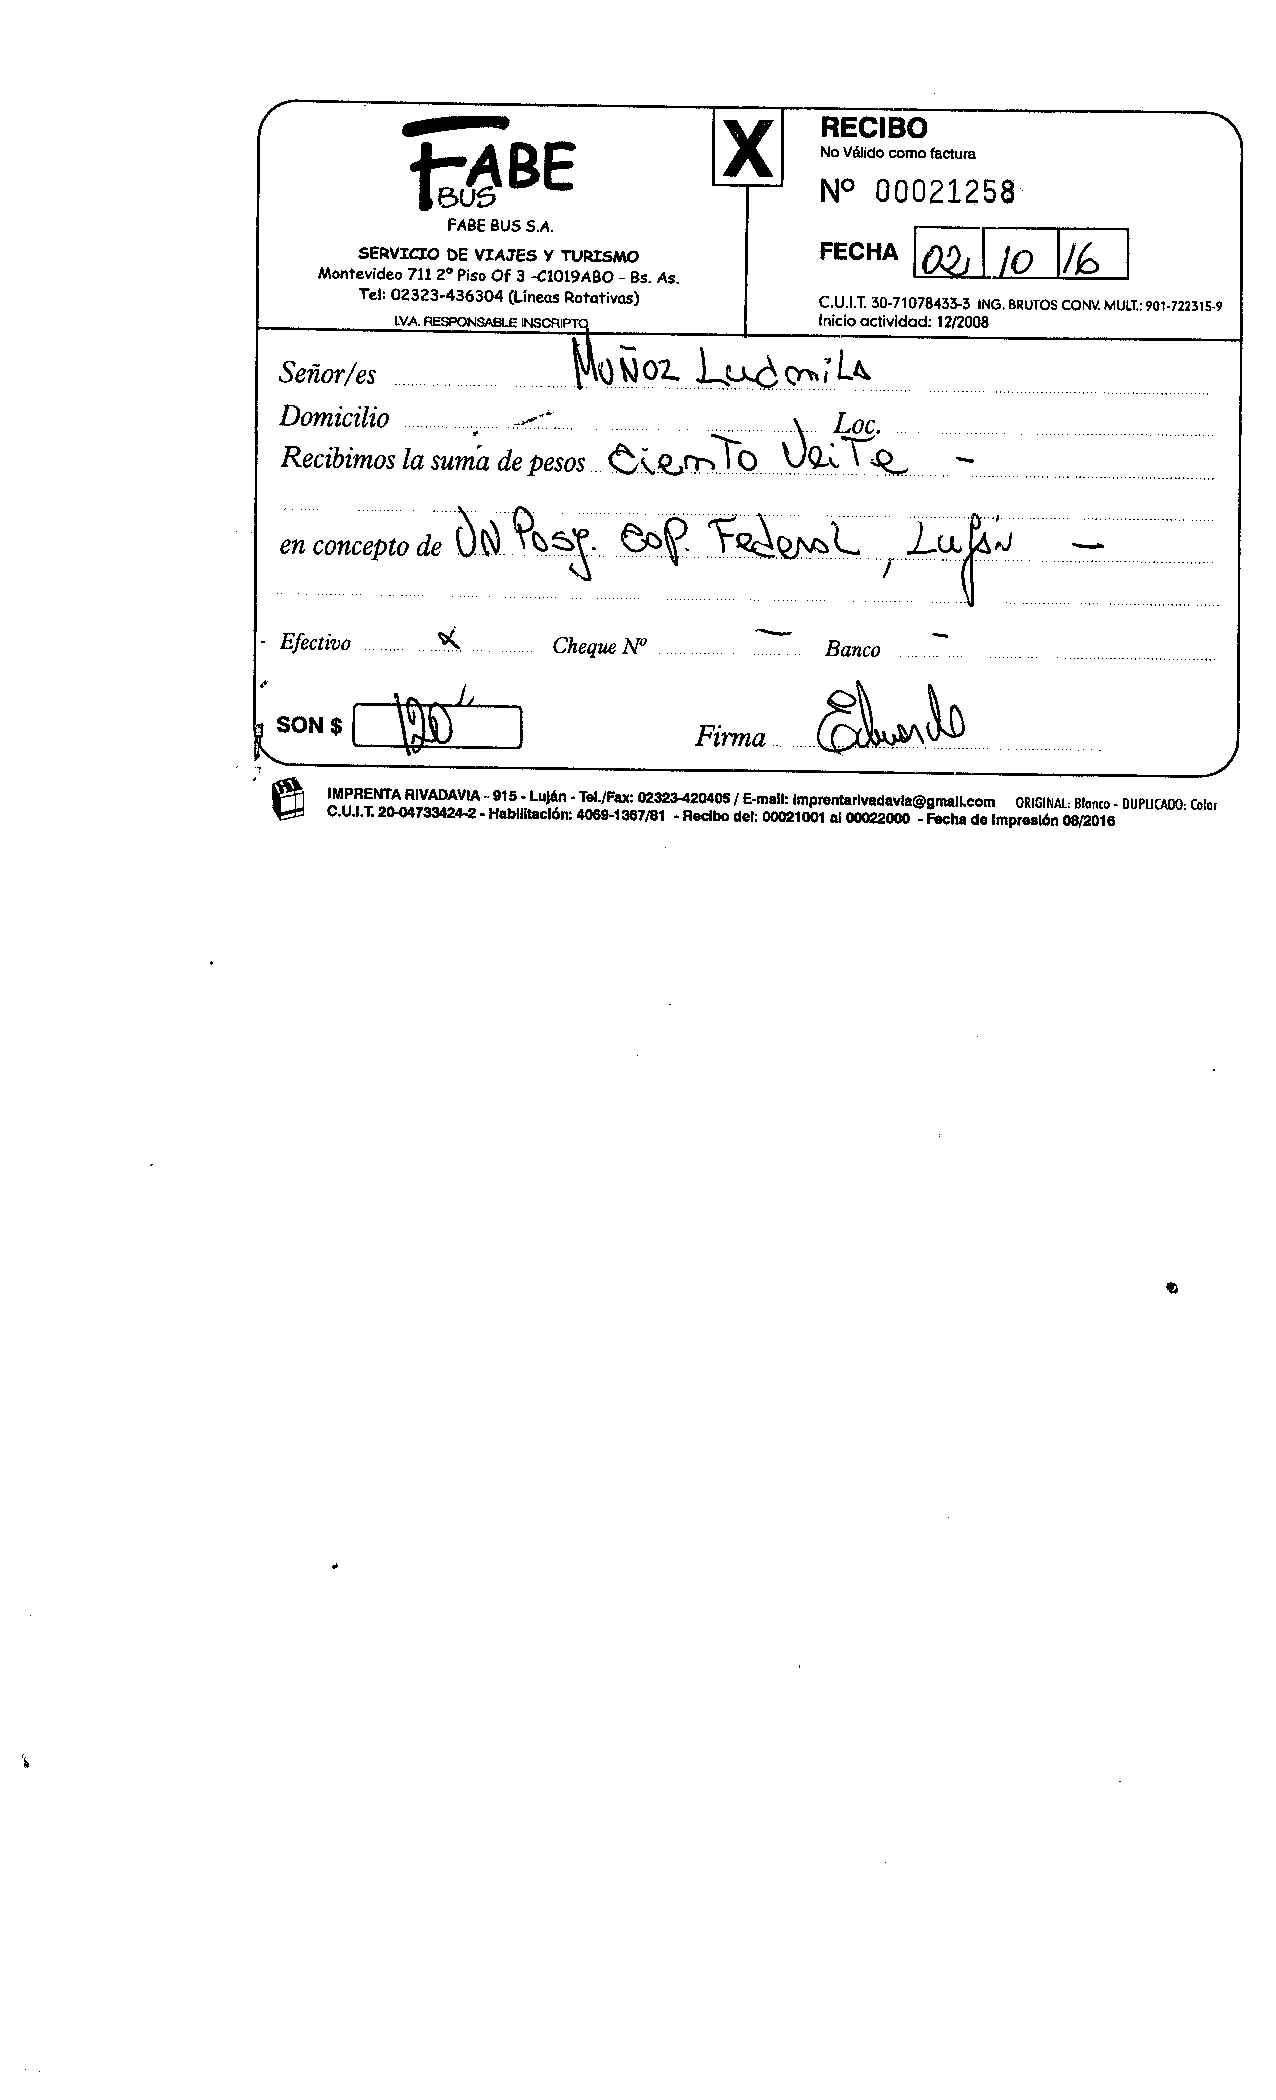 FABE
BUS
FABE BUS S.A.
SERVICIO DE VIAJES Y TURISMO
Montevideo 711 2º Piso Of 3 -C1019ABO - Bs. As.
Tel: 02323-436304 (Líneas Rotativas)
I.V.A. RESPONSABLE INSCRIPTO
X
RECIBO
No Válido como factura
Nº 00021258
FECHA 02 10 16
C.U.I.T. 30-71078433-3 ING. BRUTOS CONV. MULT.: 901-722315-9
Inicio actividad: 12/2008
Señor/es MUÑOZ Ludmila
Domicilio - Loc.
Recibimos la suma de pesos Ciento Veite -
en concepto de UN Pasj. Cap. Federal, Luján -
Efectivo x Cheque Nº - Banco -
SON $ 120 Firma Eduardo
IMPRENTA RIVADAVIA - 915 - Luján - Tel./Fax: 02323-420405 / E-mail: imprentarivadavia@gmail.com ORIGINAL: Blanco - DUPLICADO: Color
C.U.I.T. 20-04733424-2 - Habilitación: 4069-1367/81 - Recibo del: 00021001 al 00022000 - Fecha de Impresión 08/2016